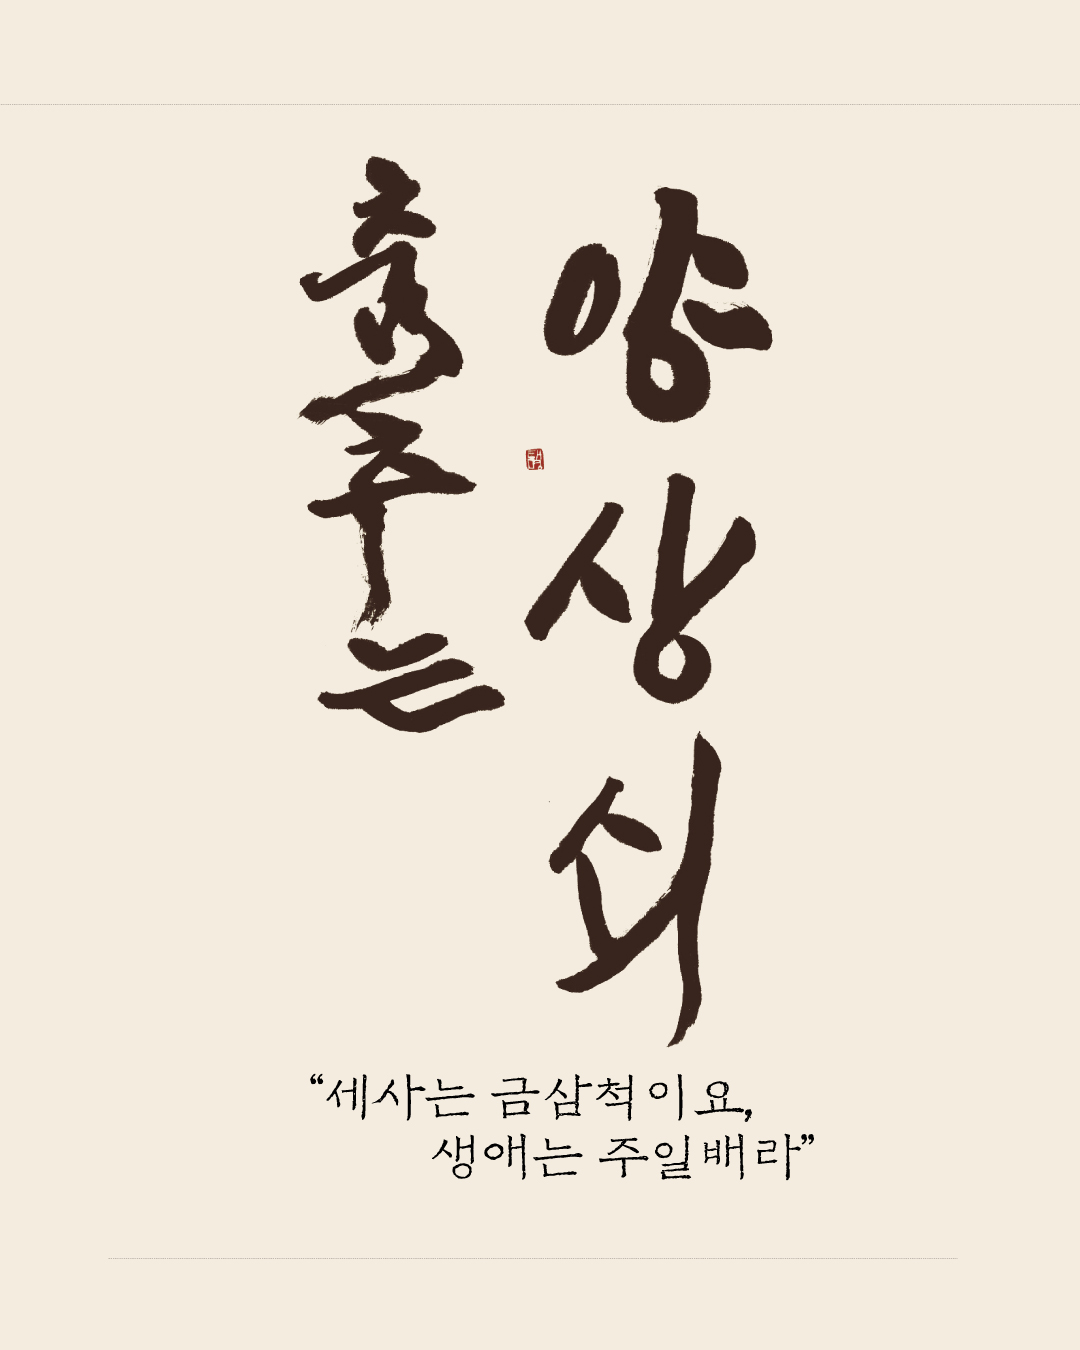 춤추는
양상쇠
“세사는 금삼척이요,
생애는 주일배라”